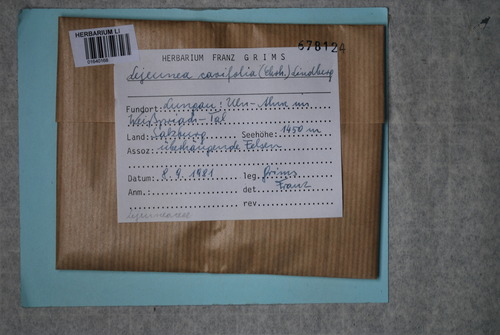 HERBARIUM LI
678124
HERBARIUM FRANZ GRIMS
Lejeunea cavifolia (Ehrh.) Lindberg
Fundort: Lungau:
Weißpriach-Tal
Land: Salzburg Seehöhe: 1450 m
Assoz: überhängende Felsen
Datum: 8. 9. 1981 leg. Grims
Anm.: det. Franz
rev.
Lejeuneaceae